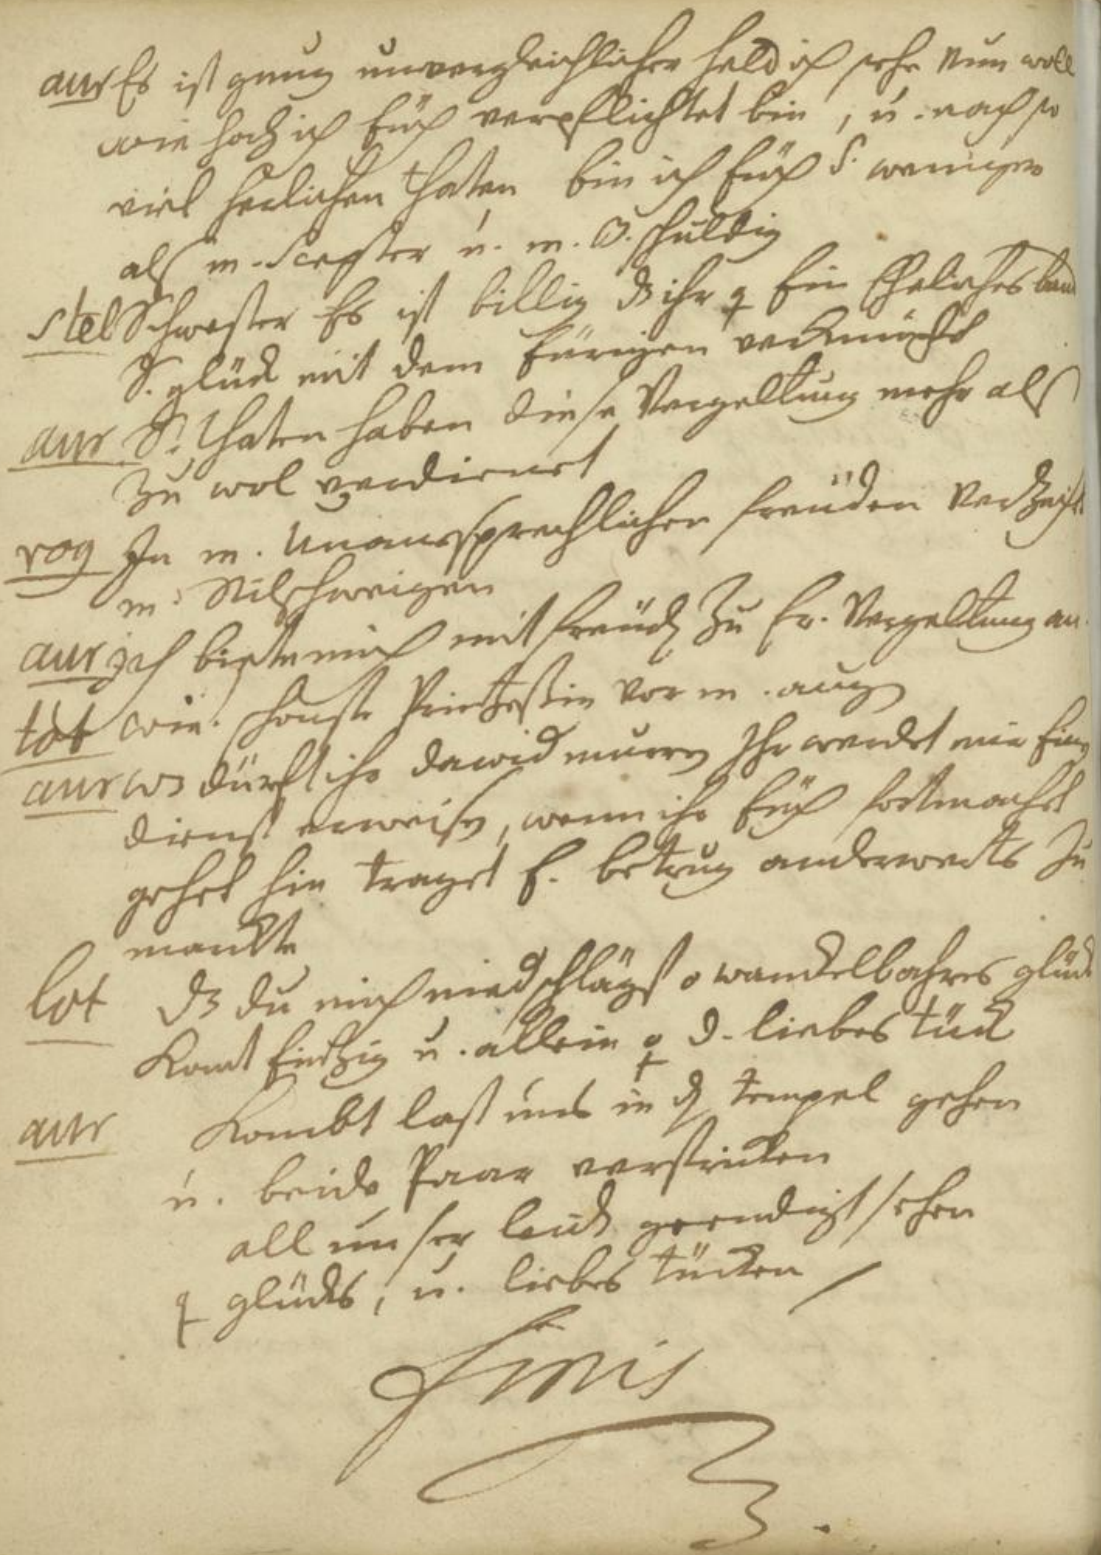 aur Es ist gnug unvergleichlicher held ich sehe Nun woll
wie hoch ich Euch verpflichtet bin, u. nach so
viel herlichen thaten bin ich Euch S. weniger
als m. Scepter u. m. schuldig
stel Schwester Es ist billig dz ihr Ein Eheliches band
S. glück mit dem Eurigen verknüpft
aur S. thaten haben diese Vergeltung mehr als
zu wol verdienet
rog In m. Unaussprechlichen freuden Verzeiht
m. Stilschweigen
aur ich biete mich mit freud zu Er. Vergeltung an.
lot wie. schönste Printzessin vor m. aug
aur ws dürft ihr dawid murren Ihr werdet mir Einen
dienst erweisen, wenn ihr Euch fortmachet
gehet hin traget E. betrug anderwerts zu
marckte
lot dz du mich niedschlägst o wandelbahres glück
Komt Eintzig u. allein d. liebes tück
aur Kombt last uns in tempel gehen
u. beide Paar verstricken
all unser leid geendigt sehen
glücks, u. liebes tücken
Finis